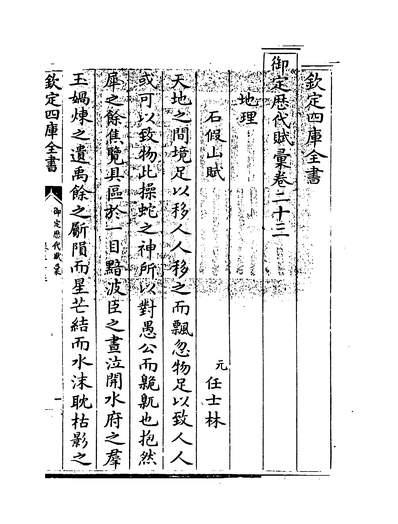 欽定四庫全書
御定歷代賦彙卷二十三
地理
石假山賦
元 任士林
天地之間境足以移人人移之而飄忽物足以致人人
或可以致物此操蛇之神所以對愚公而臲卼也抱然
犀之餘焦覽具區於一目黯波臣之晝泣開水府之羣
玉媧煉之遺禹餘之斸隕而星芒結而水沫耽枯影之
欽定四庫全書
御定歷代賦彙
一